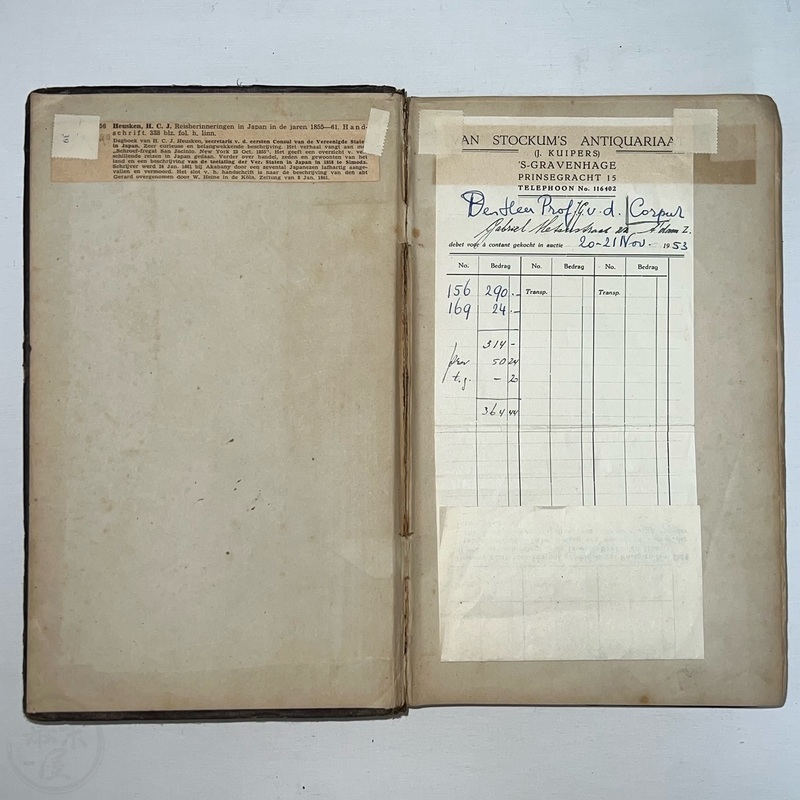 39
56 Heusken, H. C. J. Reisherinneringen in Japan in de jaren 1855—61. Hand-
schrift. 338 blz. fol. h. linn.
Dagboek van H. C. J. Heusken, secretaris v. d. eersten Consul van de Vereenigde Staten
in Japan. Zeer curieuse en belangwekkende beschrijving. Het verhaal vangt aan
„Schroef-fregat San Jacinto. New York 22 Oct. 1855". Het geeft een overzicht v.
schillende reizen in Japan gedaan. Verder over handel, zeden en gewoonten van het
land en een beschrijving van de
schrijver werd 14 Jan. 1861 bij Akabany door een zevental Japanezen lafhartig aange-
vallen en vermoord. Het slot v. h. handschrift is naar de beschrijving van den abt
Gerard overgenomen door W. Heine in de Köln. Zeitung van 8 Jan. 1861.
AN STOCKUM'S ANTIQUARIAA
(J. KUIPERS)
'S-GRAVENHAGE
PRINSEGRACHT 15
TELEPHOON No. 116402
Den Heer Prof. v. d. Corput
Gabriel Metsustraat A'dam Z.
debet voor à contant gekocht in auctie 20-21 Nov. 1953
No. Bedrag No. Bedrag No. Bedrag
156 290.— Transp. Transp.
169 24.—
314 -
50 24
t.g. - 20
364 44